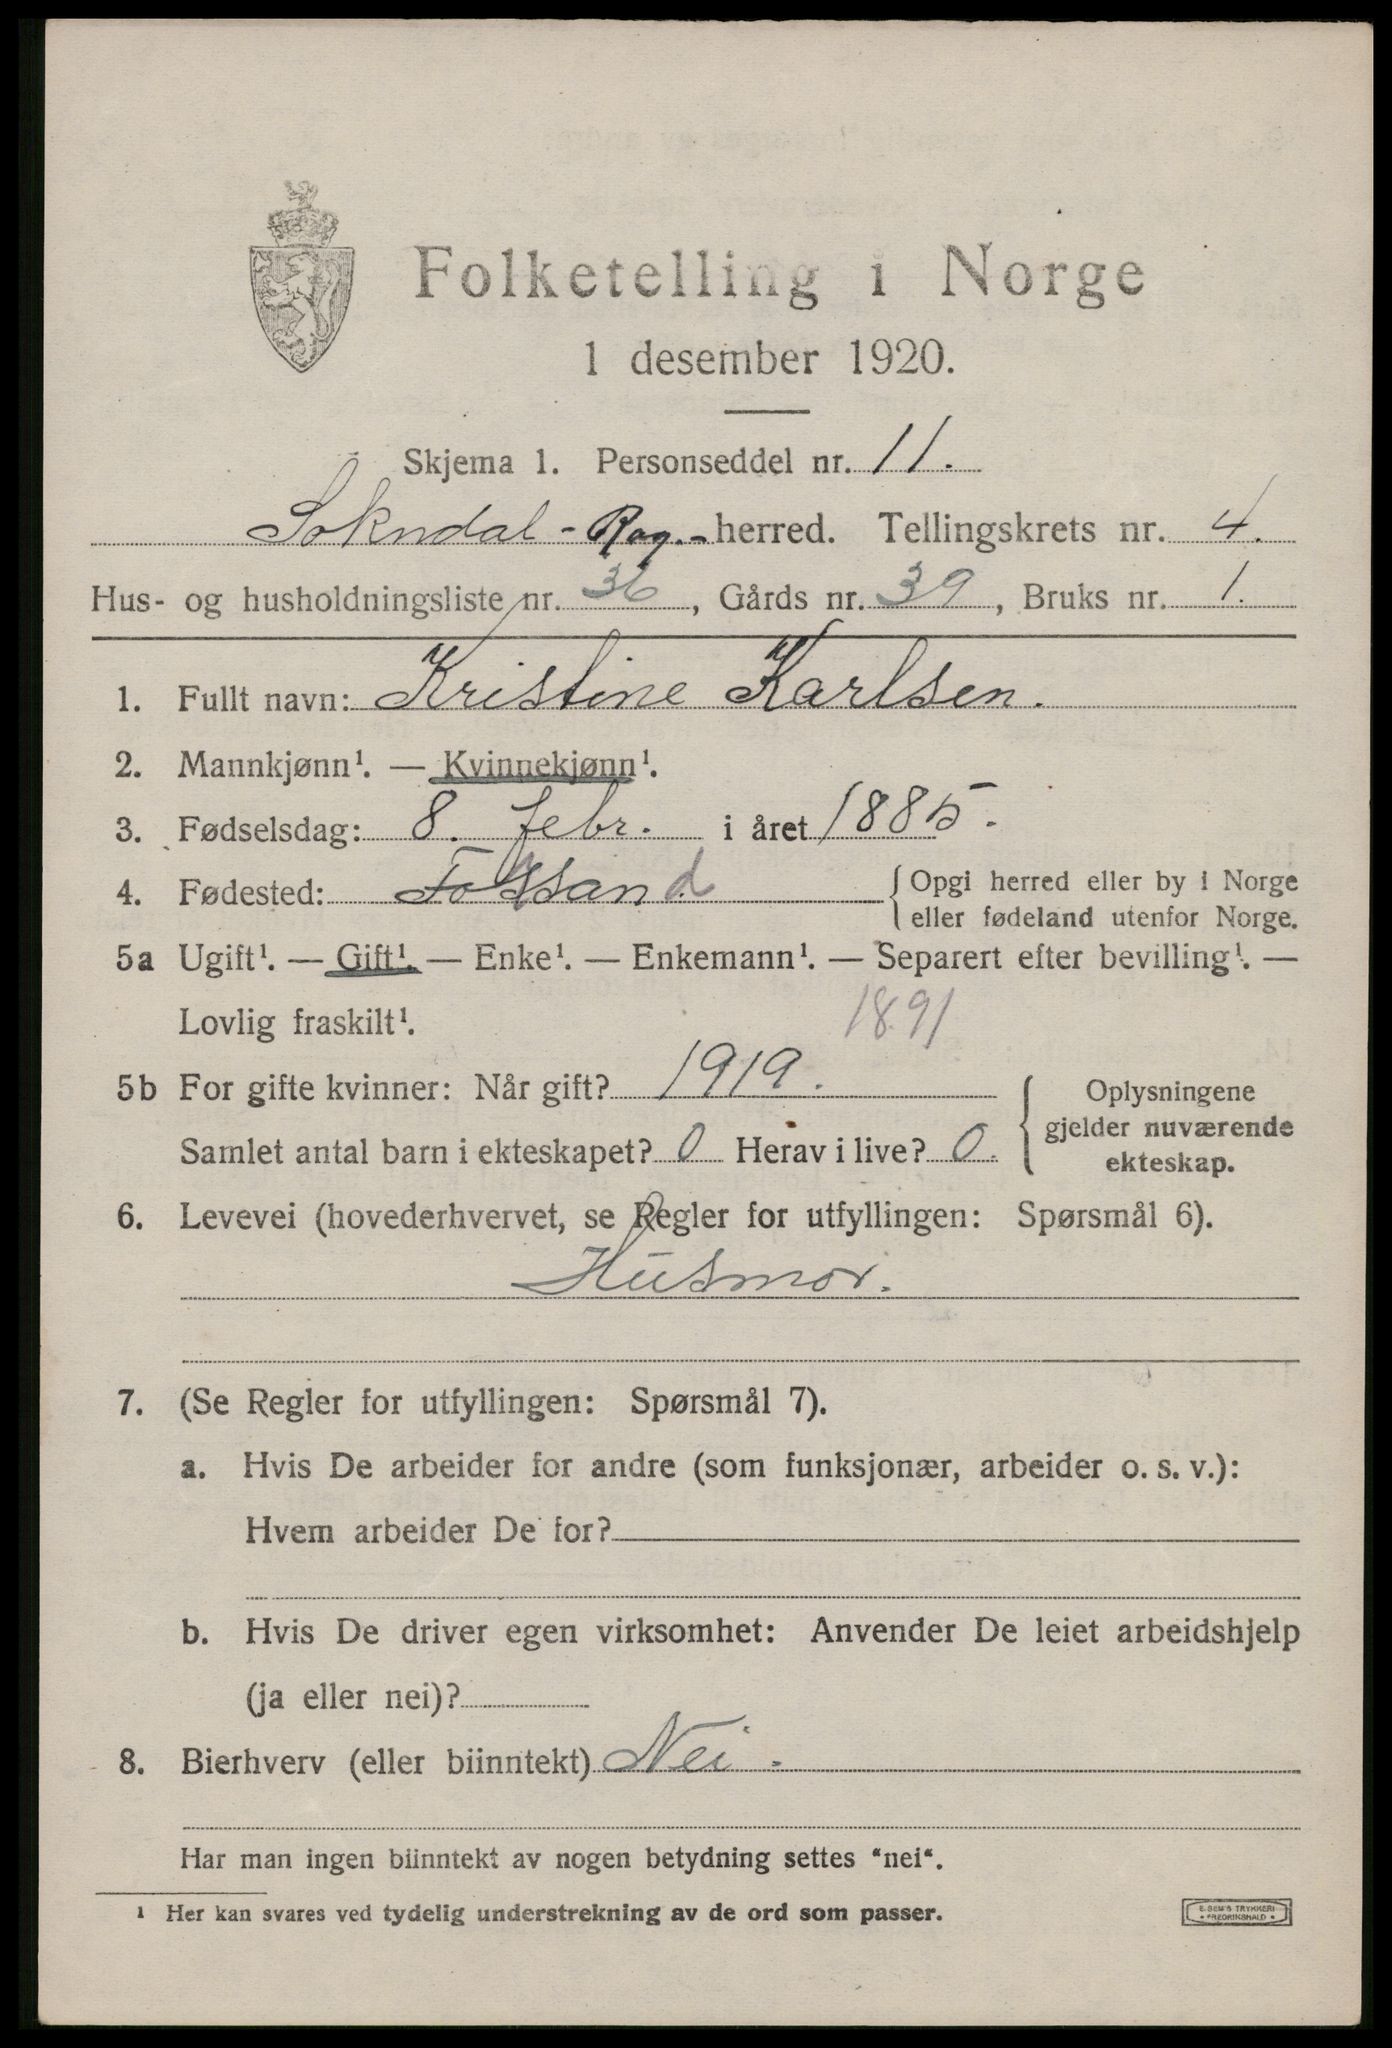 Folketelling i Norge
1 desember 1920.
Skjema 1. Personseddel nr. 11.
Sokndal - Rog. - herred. Tellingskrets nr. 4.
Hus- og husholdningsliste nr. 36, Gårds nr. 39, Bruks nr. 1.
1. Fullt navn: Kristine Karlsen.
2. Mannkjønn¹. — Kvinnekjønn¹.
3. Fødselsdag: 8. febr. i året 1885.
4. Fødested: Forssand { Opgi herred eller by i Norge
eller fødeland utenfor Norge.
5a Ugift¹. — Gift¹. — Enke¹. — Enkemann¹. — Separert efter bevilling¹. —
Lovlig fraskilt¹. 1891
5b For gifte kvinner: Når gift? 1919. { Oplysningene
gjelder nuværende
Samlet antal barn i ekteskapet? 0 Herav i live? 0.
ekteskap.
6. Levevei (hovederhvervet, se Regler for utfyllingen: Spørsmål 6).
Husmor.
7. (Se Regler for utfyllingen: Spørsmål 7).
a. Hvis De arbeider for andre (som funksjonær, arbeider o. s. v.):
Hvem arbeider De for?
b. Hvis De driver egen virksomhet: Anvender De leiet arbeidshjelp
(ja eller nei)?
8. Bierhverv (eller biinntekt) Nei.
Har man ingen biinntekt av nogen betydning settes "nei".
¹ Her kan svares ved tydelig understrekning av de ord som passer.
E. SEM'S TRYKKERI
• FREDRIKSHALD •